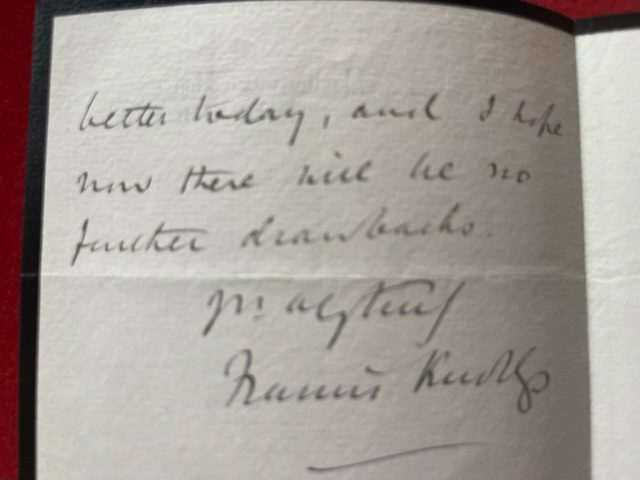 better today, and I hope
now there will be no
further drawbacks.
Francis Knollys